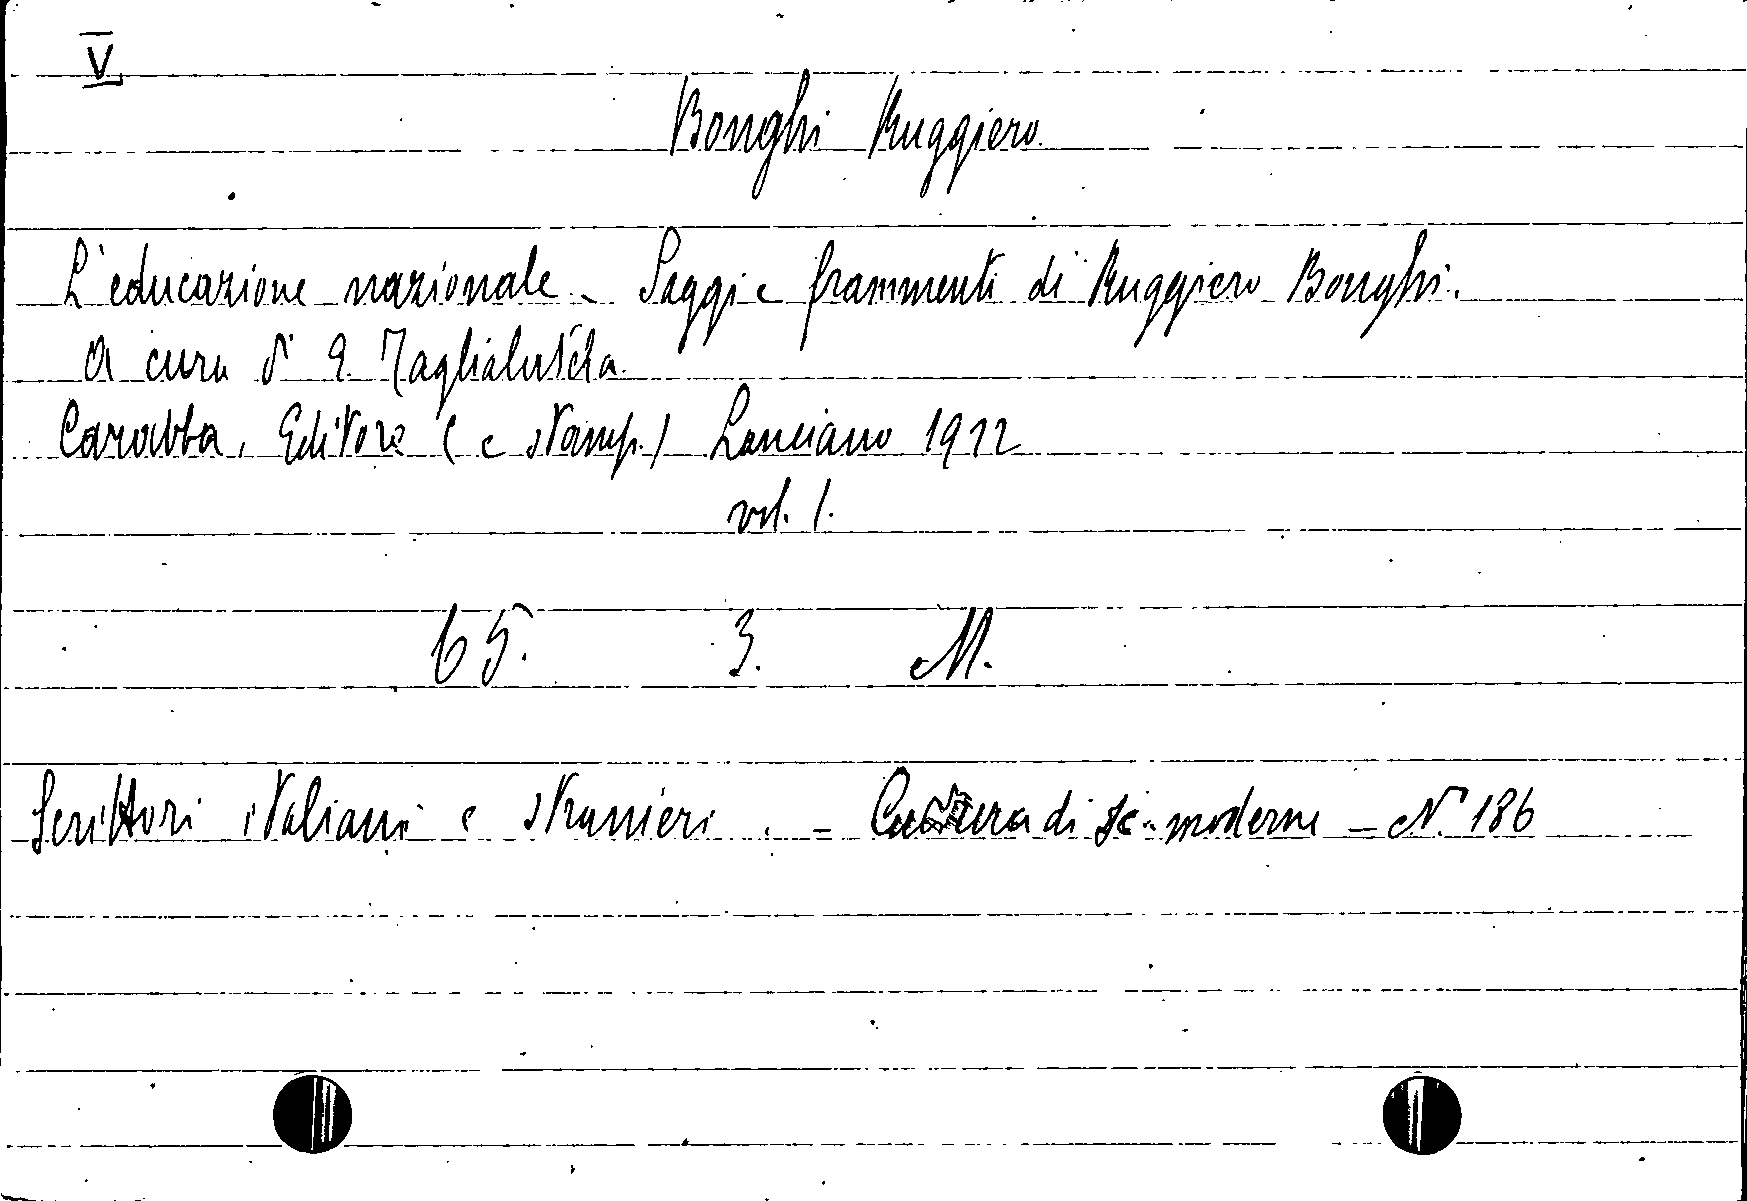 V
Bonghi Ruggiero
L'educazione nazionale - Saggi e frammenti di Ruggiero Bonghi.
A cura di E. Taglialatela.
Carabba, Editore (e stamp.) Lanciano 1912
vol. 1.
65. 3. M.
Scrittori italiani e stranieri. - di moderne - N. 186